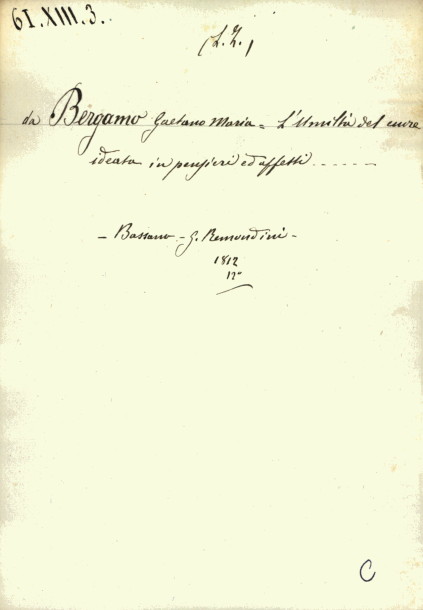 61.XIII.3.
(L.Z.)
da Bergamo Gaetano Maria = L'Umiltà del cuore
ideata in pensieri ed affetti . . . . . .
- Bassano - G. Remondini -
1812
12°
C